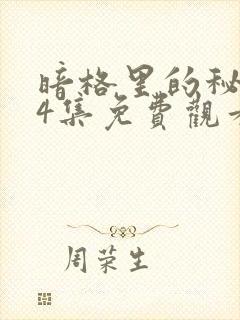 暗格里的秘
4集免費觀
周荣生